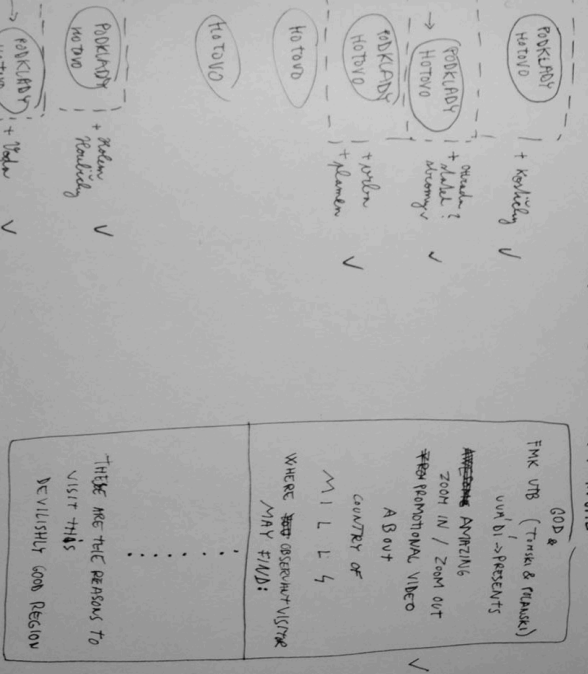 PODKLADY
HOTOVO
+ Kostičky
→
PODKLADY
HOTOVO
+ statek?
stromy
PODKLADY
HOTOVO
+ vrba
+ plamen
HOTOVO
HOTOVO
PODKLADY
HOTOVO
+ Holem
→
PODKLADY
HOTOVO
+ Voda
GOD &
FMK UTB (TOMSKI & POLANSKI)
UVÁDÍ → PRESENTS
AMAZING
ZOOM IN / ZOOM OUT
PROMOTIONAL VIDEO
ABOUT
COUNTRY OF
MILLS
WHERE OBSERVANT VISITOR
MAY FIND:
THESE ARE THE REASONS TO
VISIT THIS
DEVILISHLY GOOD REGION